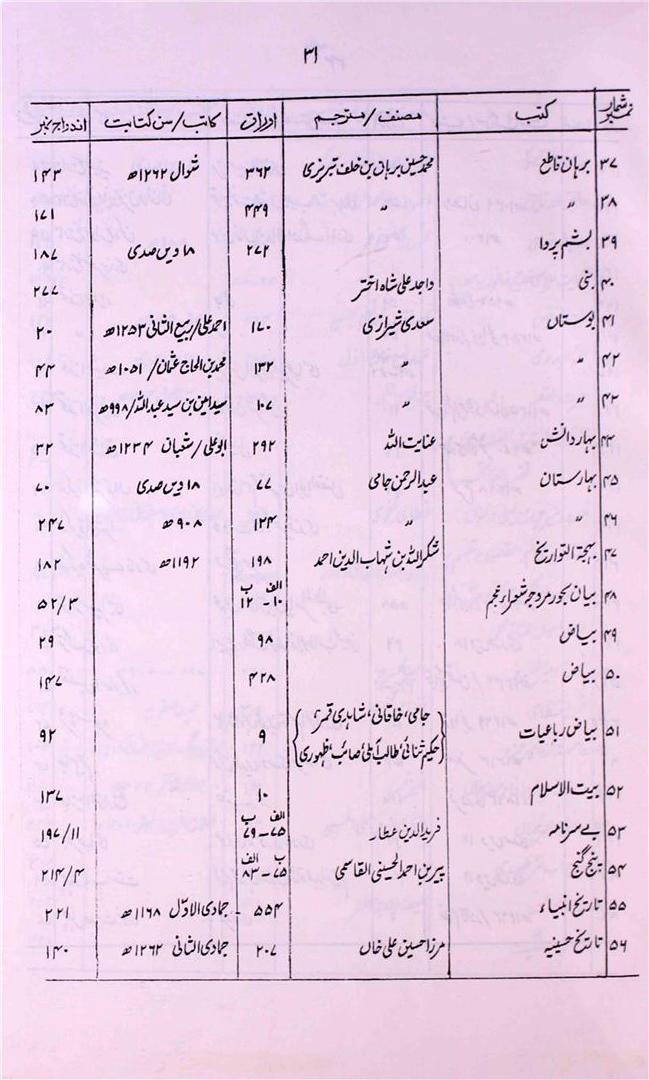 ۳۱
نمبر شمار | کتب | مصنف / مترجم | اوراق | کاتب / سن کتابت | اندراج نمبر
۳۷ | برہان قاطع | محمد حسین برہان بن خلف تبریزی | ۳۶۲ | شوال ۱۲۶۲ھ | ۱۴۳
۳۸ | " | " | ۴۴۹ | | ۱۷۱
۳۹ | بشم پردا | | ۲۷۲ | ۱۸ ویں صدی | ۱۸۷
۴۰ | بنی | واجد علی شاہ اختر | | | ۲۷۷
۴۱ | بوستاں | سعدی شیرازی | ۱۷۰ | احمد علی / ربیع الثانی ۱۲۵۳ھ | ۲۰
۴۲ | " | " | ۱۳۲ | محمد بن الحاج عثمان / ۱۰۵۱ھ | ۴۴
۴۳ | " | | ۱۰۷ | سید امین بن سید عبداللہ / ۹۹۸ھ | ۸۳
۴۴ | بہار دانش | عنایت اللہ | ۲۹۲ | ابو علی / شعبان ۱۲۳۴ھ | ۳۲
۴۵ | بہارستان | عبدالرحمن جامی | ۷۷ | ۱۸ ویں صدی | ۷۰
۴۶ | " | " | ۱۲۴ | ۹۰۸ھ | ۲۴۷
۴۷ | بہجۃ التواریخ | شکر اللہ بن شہاب الدین احمد | ۱۹۸ | ۱۱۹۲ھ | ۱۸۲
۴۸ | بیان بحور مروجہ شعراء عجم | | الف ۱۰ - ب ۱۲ | | ۵۲/۳
۴۹ | بیاض | | ۹۸ | | ۲۹
۵۰ | بیاض | | ۴۲۸ | | ۱۴۷
۵۱ | بیاض رباعیات | {جامی، خاقانی، شاہدی قمر،
حکیم ثنائی، طالب آملی، صائب، ظہوری} | ۹ | | ۹۲
۵۲ | بیت الاسلام | | ۱۰ | | ۱۳۷
۵۳ | بے سر نامہ | فرید الدین عطار | الف ۷۵ - ب ۷۹ | | ۱۹۶/۱۱
۵۴ | پنج گنج | پیر بن احمد الحسینی القاسمی | ب ۷۵ - الف ۸۲ | | ۲۱۴/۴
۵۵ | تاریخ انبیاء | | ۵۵۴ | جمادی الاول ۱۱۶۸ھ | ۲۲۱
۵۶ | تاریخ حسینیہ | مرزا حسین علی خاں | ۲۰۷ | جمادی الثانی ۱۲۶۲ھ | ۱۴۰